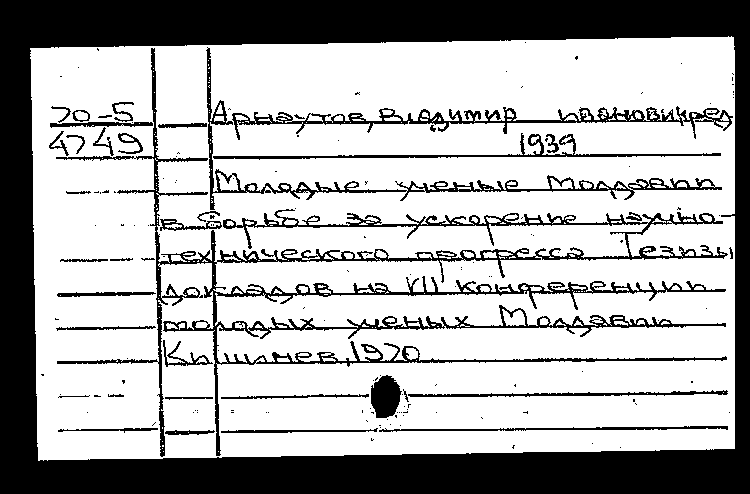 70-5 Арнаутов, Владимир Иванович ред
4749 1939
Молодые ученые Молдавии
в борьбе за ускорение научно-
технического прогресса. Тезизы
докладов на VII конференции
молодых ученых Молдавии.
Кишинев, 1970